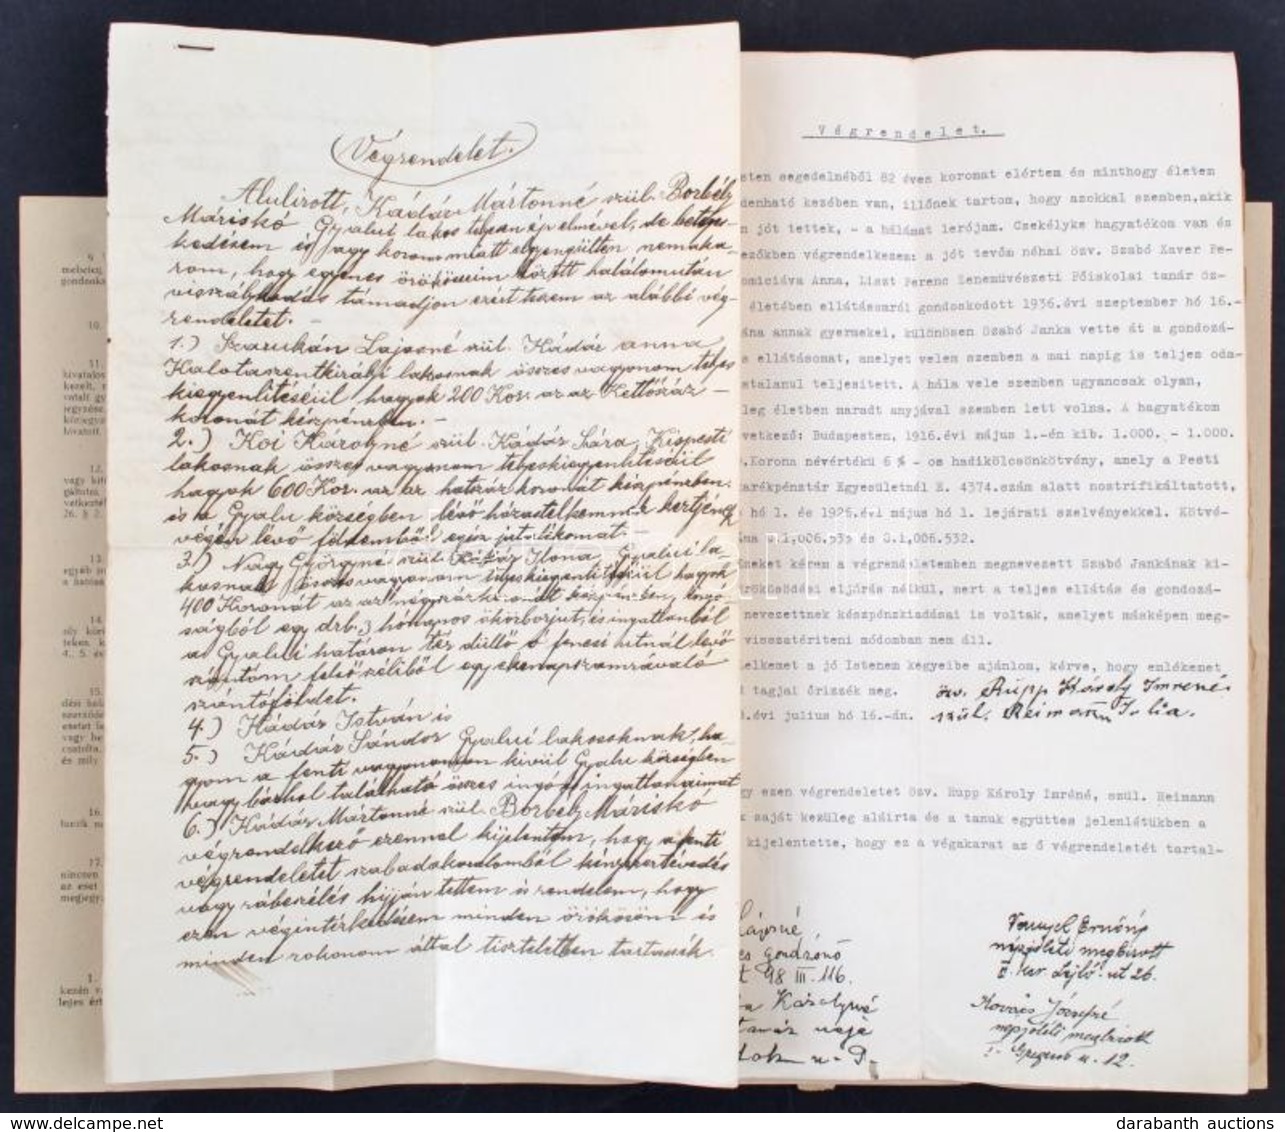 Végrendelet.
Alulirott, Kádár Mártonné szül. Borbély
Máriskó Gyalui lakos teljesen ép elmével, de beteges-
kedésem és nagy korom miatt elgyengülten nemaka-
rom, hogy egyenes örököseim között halálomután
viszálykodás támadjon ezért teszem az alábbi vég-
rendeletet. -
1.) Szarukán Lajosné szül. Kádár Anna
Kalotaszentkirályi lakosnak összes vagyonom teljes
kiegyenlitéséül hagyok 200 Kor. az az Kettőszáz -
koronát készpénzben. -
2.) Koi Károlyné szül. Kádár Sára, Kispesti
lakosnak összes vagyonom teljeskiegyenlitéséül
hagyok 600 Kor. az az hatszáz koronát készpénzben.
is a Gyalu községben lévő házastelkemnek kertjének
végén lévő földemből egész jut
3.) Nagy Györgyné szül. Kádár Ilona Gyalui la-
kosnak összesvagyonom teljeskiegenlitéséül hagyok
400 Koronát az az négyszázkoronát készpénzben, ingó-
ságból egy drb. 3 honapos ökörborjut, és ingatlanból
a Gyalui határon tér düllő a fenesi utnál lévő
szántóm felső széliből egy ekenapszamravaló
szántóföldet.
4.) Kádár István is
5.) Kádár Sándor Gyalui lakosoknak, ha-
gyom a fenti vagyonomon kivül Gyalu községben
vagy bárhol található összes ingó és ingatlanaimat
6.) Kádár Mártonné szül. Borbély Máriskó
végrendelkező ezennel kijelentem, hogy a fenti
végrendeletet szabadakaratomból kényszertévedés
vagy rábeszélés hijján tettem is rendelem, hogy
ezen végintézkedésem minden örökösöm is
minden rokonom által tiszteletben tartassék.
Végrendelet.
sten segedelnéből 82 éves koromat elértem és minthogy életem
denható kezében van, illőnek tartom, hogy azokkal szemben,akik
n jót tettek, - a hálámat lerójam. Csekélyke hagyatékom van és
ezőkben végrendelkezem: a jót tevőm néhai özv. Szabó Xaver Fe-
omiciáva Anna, Liszt Ferenc Zeneművészeti Főiskolai tanár öz-
életében ellátásomról gondoskodott 1936.évi szeptember hó 16.-
ána annak gyermekei, különösen Szabó Janka vette át a gondozá-
s ellátásomat, amelyet velem szemben a mai napig is teljes oda-
atalanul teljesitett. A hála vele szemben ugyancsak olyan,
leg életben maradt anyjával szemben lett volna. A hagyatékom
vetkező: Budapesten, 1916.évi május 1.-én kib. 1.000. - 1.000.
.Korona névértékü 6 % - os hadikölcsönkötvény, amely a Pesti
arékpénztár Egyesületnél E. 4374.szám alatt nostrifikáltatott,
hó 1. és 1926.évi május hó 1. lejárati szelvényekkel. Kötvé-
ma 0.1,006.535 és 0.1,006.532.
őmeket kérem a végrendeletemben megnevezett Szabó Jankának ki-
örökösödési eljárás nélkül, mert a teljes ellátás és gondozá-
nevezettnek készpénzkiadásai is voltak, amelyet másképen meg-
visszatériteni módomban nem áll.
elkemet a jó Istenem kegyeibe ajánlom, kérve, hogy emlékemet
i tagjai őrizzék meg.
.évi julius hó 16.-án.
özv. Rupp Károly Imréné
szül. Reimann Julia.
gy ezen végrendeletet özv. Rupp Károly Imréné, szül. Reimann
k saját kezüleg aláirta és a tanuk együttes jelenlétükben a
kijelentette, hogy ez a végakarat az ő végrendeletét tartal-
Lajosné,
es gondzónő
t 98 III. 116.
Károlyné
tanár neje
Ernőné
népjóléti megbizott
ut 26.
Kovács Józsefné
népjóléti megbizott
u. 12.
10.
11.
12.
13.
14.
4., 5. és
15.
16.
17.
nincsen
az eset
1.
kezén v
lejes ért
darabanth auctions